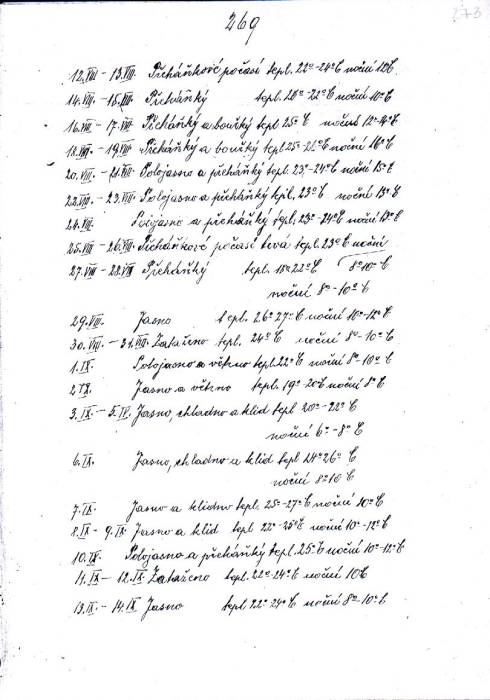 269
273
12.VIII – 13.VIII. Přeháňkové počasí tepl. 22°-24°C noční 12°C
14.VIII. – 15.VIII Přeháňky tepl. 20°-22°C noční 10°C
16.VIII – 17.VIII Přeháňky a bouřky tepl 25°C noční 12°-14°C
18.VIII. – 19.VIII Přeháňky a bouřky tepl 25°-26°C noční 16°C
20.VIII. – 21.VIII Polojasno a přeháňky tepl. 23°-24°C noční 15°C
22.VIII. – 23.VIII. Polojasno a přeháňky tepl. 23°C noční 13°C
24.VIII. Polojasno a přeháňky tepl. 23°-24°C noční 13°C
25.VIII – 26.VIII. Přeháňkové počasí trvá tepl. 23°C noční
8°10°C
27.VIII – 28.VIII Přeháňky tepl. 18°22°C
noční 8°-10°C
29.VIII. Jasno tepl. 26°27°C noční 10°-12°C
30.VIII. – 31.VIII. Zataženo tepl. 24°C noční 8°-10°C
1.IX Polojasno a větrno tepl. 22°C noční 8°-10°C
2.IX Jasno a větrno tepl. 19°-20°C noční 8°C
3.IX – 5.IX. Jasno, chladno a klid tepl 20°-22°C
noční 6°-8°C
6.IX. Jasno, chladno a klid tepl 24°26°C
noční 8°10°C
7.IX. Jasno a klidno tepl. 25°-27°C noční 10°C
8.IX – 9.IX Jasno a klid tepl 22°-25°C noční 10°-12°C
10.IX. Polojasno a přeháňky tepl. 25°C noční 10°-12°C
11.IX – 12.IX Zataženo tepl. 22°-24°C noční 10°C
13.IX. – 14.IX Jasno tepl 22°-24°C noční 8°-10°C